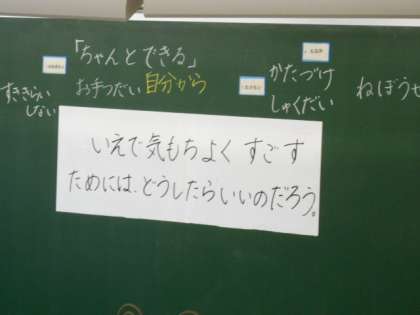 「ちゃんとできる」
すききらい
しない
お手つだい 自分から
かたづけ
しゃくだい
ねぼうせ
いえで気もちよく すごす
ためには、どうしたらいいのだろう。